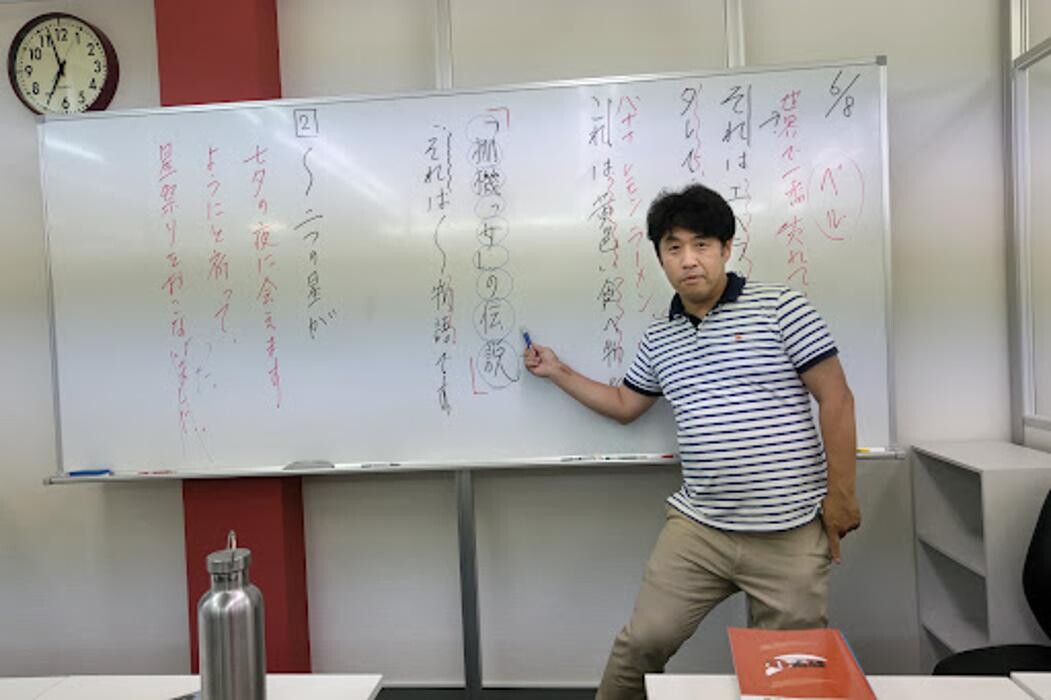 6/8
ベル
世界で一番売れて
それはエベラ
タレで、
バナナ レモン ラーメン
これは黄色い食べ物
「棚機つ女」の伝説
それは〜物語です。
2
〜二つの星が
七夕の夜に会えます
ようにと祈って、
星祭りをおこないました。